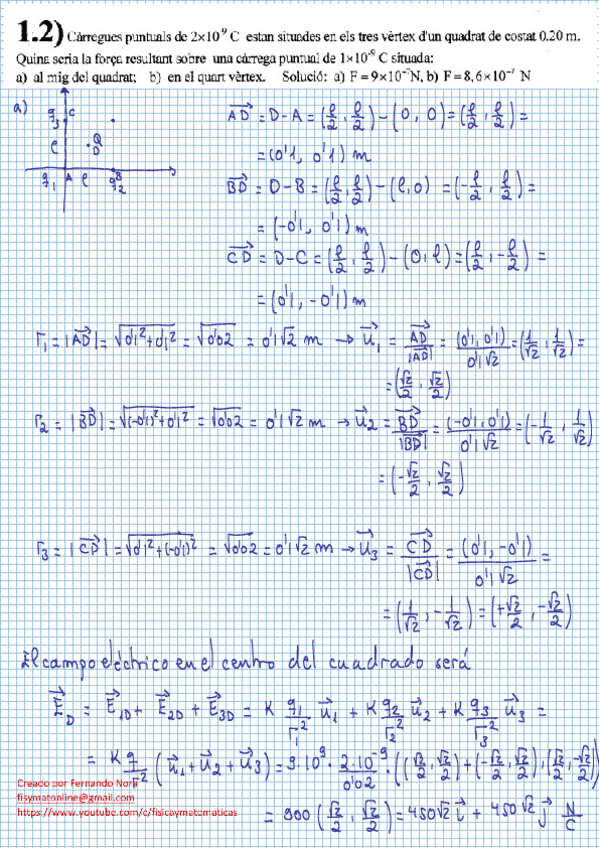 1.2) Càrregues puntuals de 2×10⁻⁹ C estan situades en els tres vèrtex d'un quadrat de costat 0.20 m.
Quina seria la força resultant sobre una càrrega puntual de 1×10⁻⁹ C situada:
a) al mig del quadrat; b) en el quart vèrtex. Solució: a) F = 9×10⁻⁷N, b) F = 8,6×10⁻⁷ N
a)
q₃ C
l Q D
q₁ A l B q₂
AD→ = D-A = (l/2, l/2) - (0, 0) = (l/2, l/2) =
= (0'1, 0'1) m
BD→ = D-B = (l/2, l/2) - (l, 0) = (-l/2, l/2) =
= (-0'1, 0'1) m
CD→ = D-C = (l/2, l/2) - (0, l) = (l/2, -l/2) =
= (0'1, -0'1) m
r₁ = |AD→| = √(0'1²+0'1²) = √0'02 = 0'1√2 m → u→₁ = AD→/|AD→| = (0'1, 0'1)/0'1√2 = (1/√2, 1/√2) =
= (√2/2, √2/2)
r₂ = |BD→| = √((-0'1)²+0'1²) = √0'02 = 0'1√2 m → u→₂ = BD→/|BD→| = (-0'1, 0'1)/0'1√2 = (-1/√2, 1/√2)
= (-√2/2, √2/2)
r₃ = |CD→| = √(0'1²+(-0'1)²) = √0'02 = 0'1√2 m → u→₃ = CD→/|CD→| = (0'1, -0'1)/0'1√2 =
= (1/√2, -1/√2) = (+√2/2, -√2/2)
El campo eléctrico en el centro del cuadrado será
E→_D = E→₁D + E→₂D + E→₃D = K q₁/r₁² u→₁ + K q₂/r₂² u→₂ + K q₃/r₃² u→₃ =
= K q/r² (u→₁ + u→₂ + u→₃) = 9·10⁹ · 2·10⁻⁹/0'02 · ((√2/2, √2/2) + (-√2/2, √2/2), (√2/2, -√2/2))
Creado por Fernando Nora
fisymatonline@gmail.com
= 900 (√2/2, √2/2) = 450√2 i→ + 450√2 j→ N/C
https://www.youtube.com/c/fisicaymatematicas